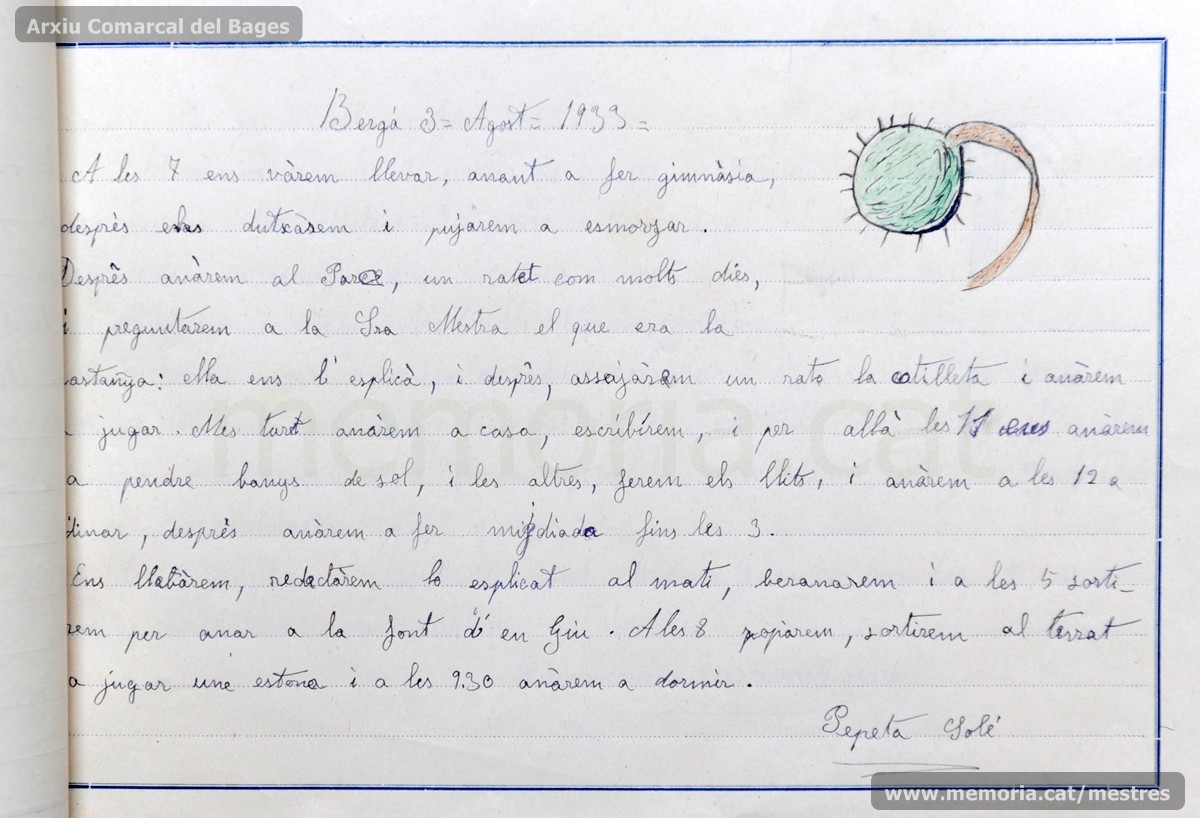 Arxiu Comarcal del Bages
Bergá 3= Agost= 1933=
A les 7 ens vàrem llevar, anant a fer gimnàsia,
desprès ens dutxàrem i pujarem a esmorzar.
Desprès anàrem al Parc, un ratet com molts dies,
i preguntarem a la Sra Mestra el que era la
astanya: ella ens l'esplicà, i desprès, assajàrem un rato la catilleta i anàrem
jugar. Mes tart anàrem a casa, escribírem, i per allà les 11 anàrem
a pendre banys de sol, i les altres, ferem els llits, i anàrem a les 12 a
dinar, desprès anàrem a fer migjdiada fins les 3.
Ens llabàrem, redactàrem lo esplicat al mati, beranarem i a les 5 sorti-
rem per anar a la font d'en Giu. A les 8 sopàrem, sortirem al terrat
a jugar une estona i a les 9.30 anàrem a dormir.
Pepeta Solé
memoria.cat
www.memoria.cat/mestres